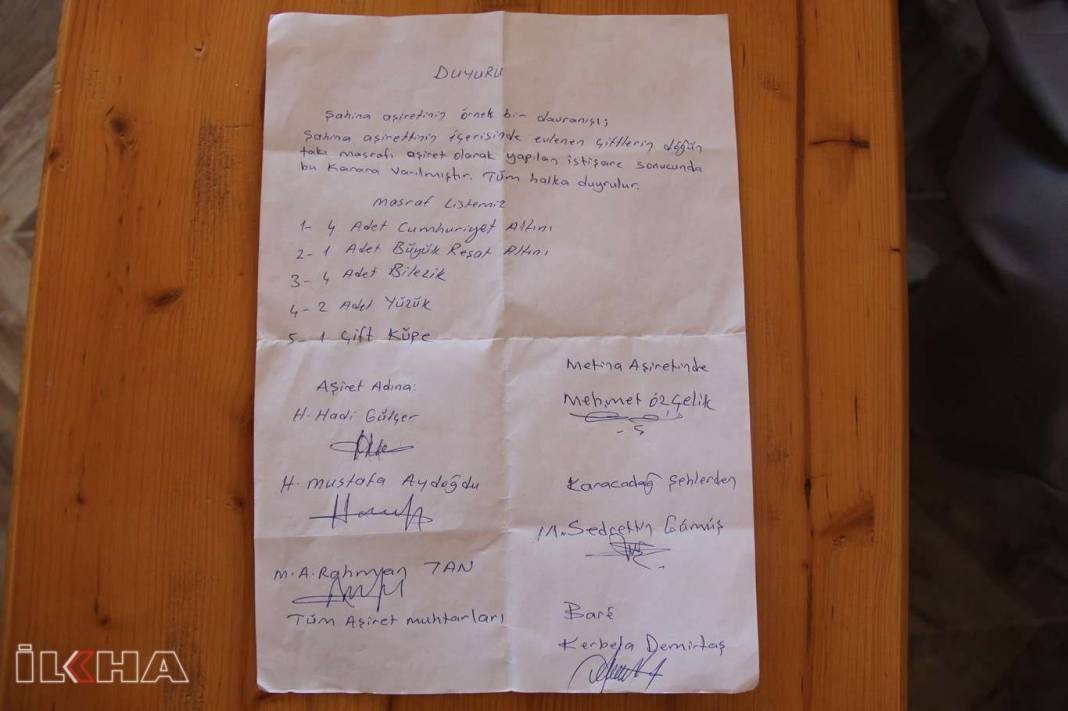 DUYURU
Şahina aşiretinin örnek bir davranışı;
Şahina aşirettinin içerisinde evlenen çiftlerin döğün
takı masrafı aşiret olarak yapılan istişare sonucunda
bu Karara varılmıştır. Tüm halka duyrulur.
Masraf Listemiz
1- 4 Adet Cumhuriyet Altını
2- 1 Adet Büyük Reşat Altını
3- 4 Adet Bilezik
4- 2 Adet Yüzük
5- 1 Çift Küpe
Aşiret Adına:
H. Hadi Gülşer
H. Mustafa Aydoğdu
M.A. Rahmyan TAN
Tüm Aşiret muhtarları
Metina Aşiretinde
Mehmet özçelik
Karacadağ şehlerden
M. Sedrettin Gümüş
Barê
Kerbela Demirtaş
İLKHA